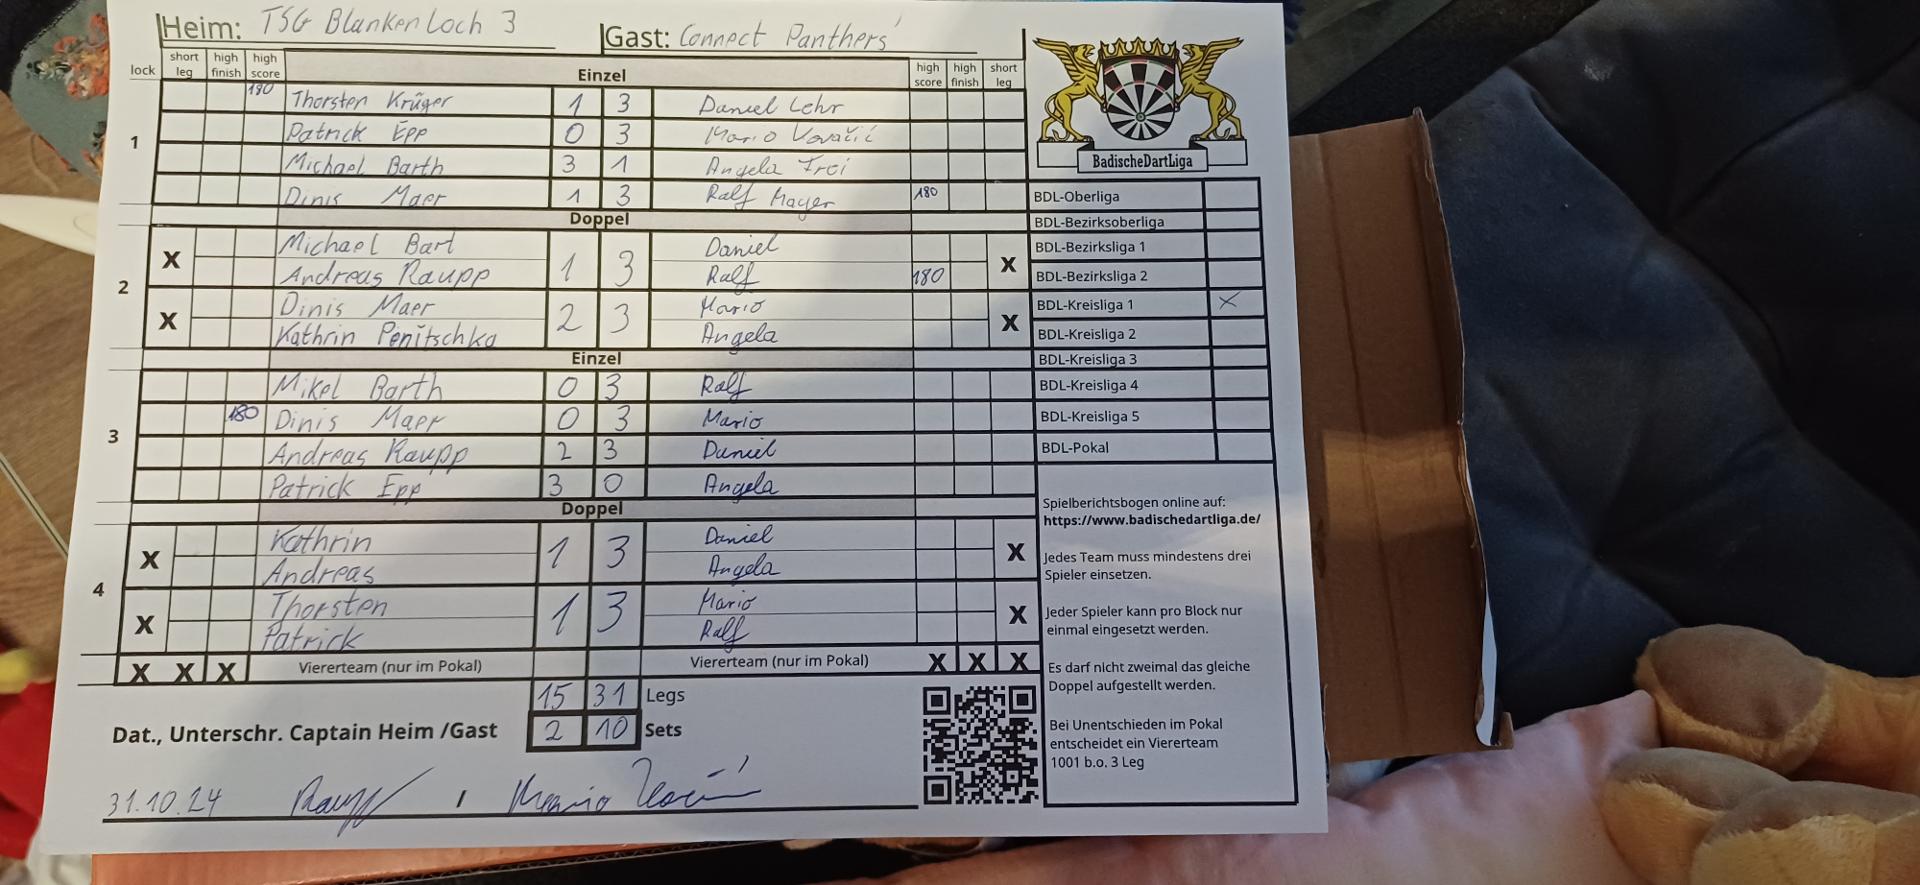 Heim: TSG Blankenloch 3 Gast: Connect Panthers
lock short leg high finish high score Einzel high score high finish short leg
1
180 Thorsten Krüger 1 3 Daniel Lehr
Patrick Epp 0 3 Mario
Michael Barth 3 1 Angela Frei
Dinis Maer 1 3 Ralf Mayer 180
Doppel
2
X Michael Bart 1 3 Daniel X
Andreas Raupp Ralf 180
X Dinis Maer 2 3 Mario X
Kathrin Penitschka Angela
Einzel
3
Mikel Barth 0 3 Ralf
180 Dinis Maer 0 3 Mario
Andreas Raupp 2 3 Daniel
Patrick Epp 3 0 Angela
Doppel
4
X Kathrin 1 3 Daniel X
Andreas Angela
X Thorsten 1 3 Mario X
Patrick Ralf
X X X Viererteam (nur im Pokal) Viererteam (nur im Pokal) X X X
15 31 Legs
Dat., Unterschr. Captain Heim /Gast 2 10 Sets
31.10.24 Raupp / Mario
BadischeDartLiga
BDL-Oberliga
BDL-Bezirksoberliga
BDL-Bezirksliga 1
BDL-Bezirksliga 2
BDL-Kreisliga 1 X
BDL-Kreisliga 2
BDL-Kreisliga 3
BDL-Kreisliga 4
BDL-Kreisliga 5
BDL-Pokal
Spielberichtsbogen online auf:
https://www.badischedartliga.de/
Jedes Team muss mindestens drei
Spieler einsetzen.
Jeder Spieler kann pro Block nur
einmal eingesetzt werden.
Es darf nicht zweimal das gleiche
Doppel aufgestellt werden.
Bei Unentschieden im Pokal
entscheidet ein Viererteam
1001 b.o. 3 Leg